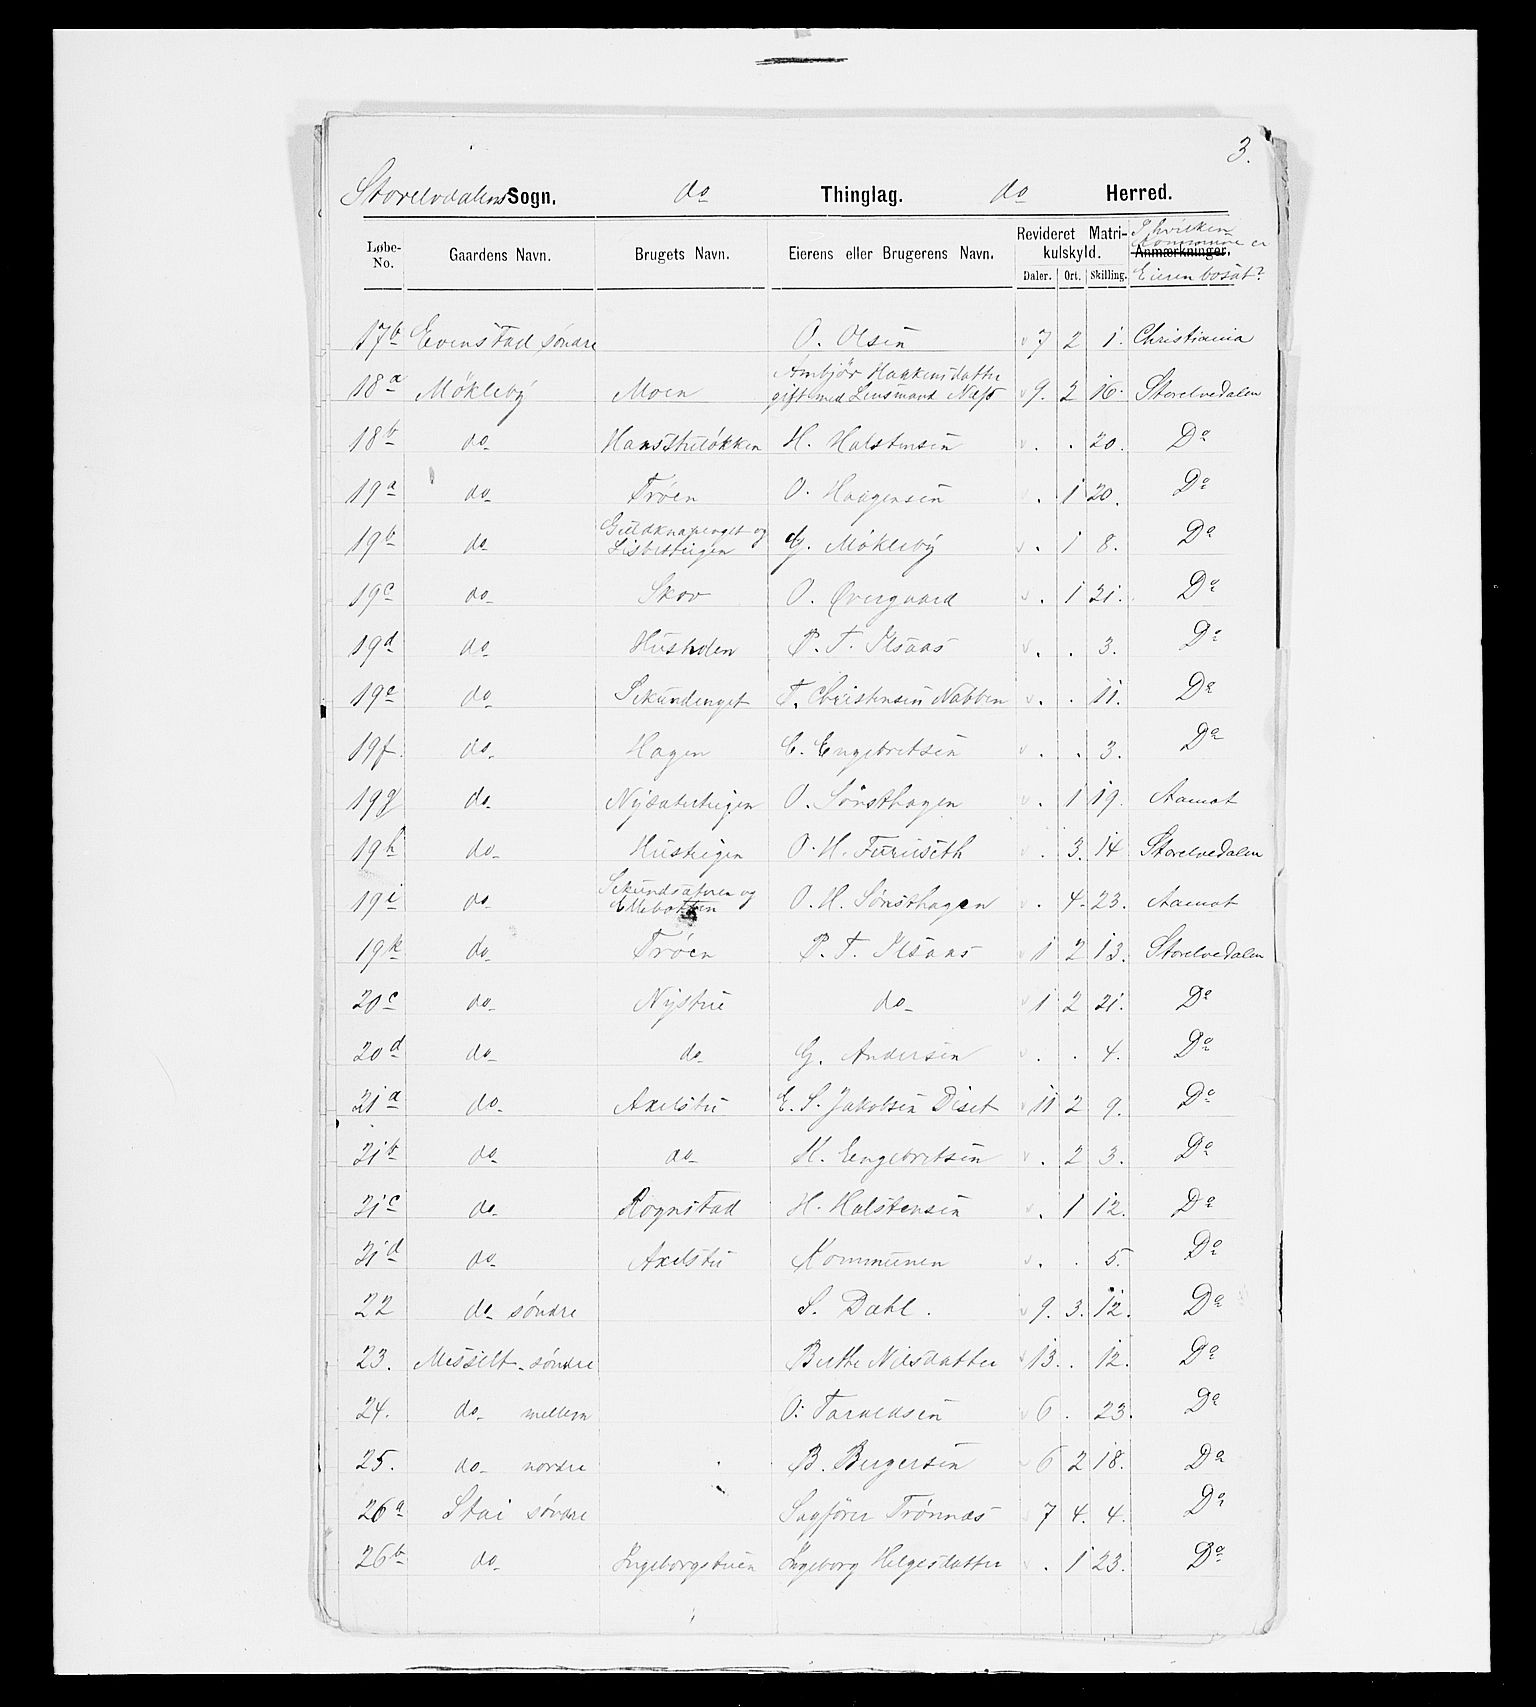 3.
Storelvdalens Sogn. do Thinglag. do Herred.
Løbe-No. Gaardens Navn. Brugets Navn. Eierens eller Brugerens Navn. Revideret Matrikulskyld. Anmærkninger.
I hvilken Kommune er Eieren bosat?
Daler. Ort. Skilling.
17b Evenstad søndre O. Olsen 7 2 1. Christiania
18a Møkleby Moen Ambjør Haakensdatter gift med Lensmand Næss 9. 2 16. Storelvedalen
18b do H. Halstensen . . 20. Do
19a do Trøen O. Haagensen . 1 20. Do
19b do og G. Møkleby . 1 8. Do
19c do Skov O. Øvergaard . 1 21. Do
19d do P. T. Ilsaas . . 3. Do
19e do Sekundenget T. Christensen Nabben . . 11. Do
19f. do Hagen E. Engebretsen . . 3. Do
19g do O. Sønsthagen . 1 19. Aamot
19h do Husteigen O. H. Furuseth . 3. 14 Storelvedalen
19i do og O. H. Sønsthagen . 4. 23. Aamot
19k do Trøen P. T. Ilsaas 1 2 13. Storelvedalen
20c do Nystue do 1 2 21. Do
20d do do G. Andersen . . 4. Do
21a do Axelstu E. S. Jakobsen Diset 11 2 9. Do
21b do do K. Engebretsen . 2 3. Do
21c do Rognstad H. Halstensen . 1 12. Do
21d do Axelstu Kommunen . . 5. Do
22 do søndre S. Dahl. 9. 3. 12. Do
23. Messelt søndre Berthe Nilsdatter 13. . 12. Do
24. do mellem O. Taraldsen 6 . 23. Do
25. do nordre B. Bergersen 6 2 18. Do
26a Stai søndre Sagfører Trønnæs 7 4. 4. Do
26b do Ingeborgstuen Ingeborg Helgesdatter . 1 23. Do